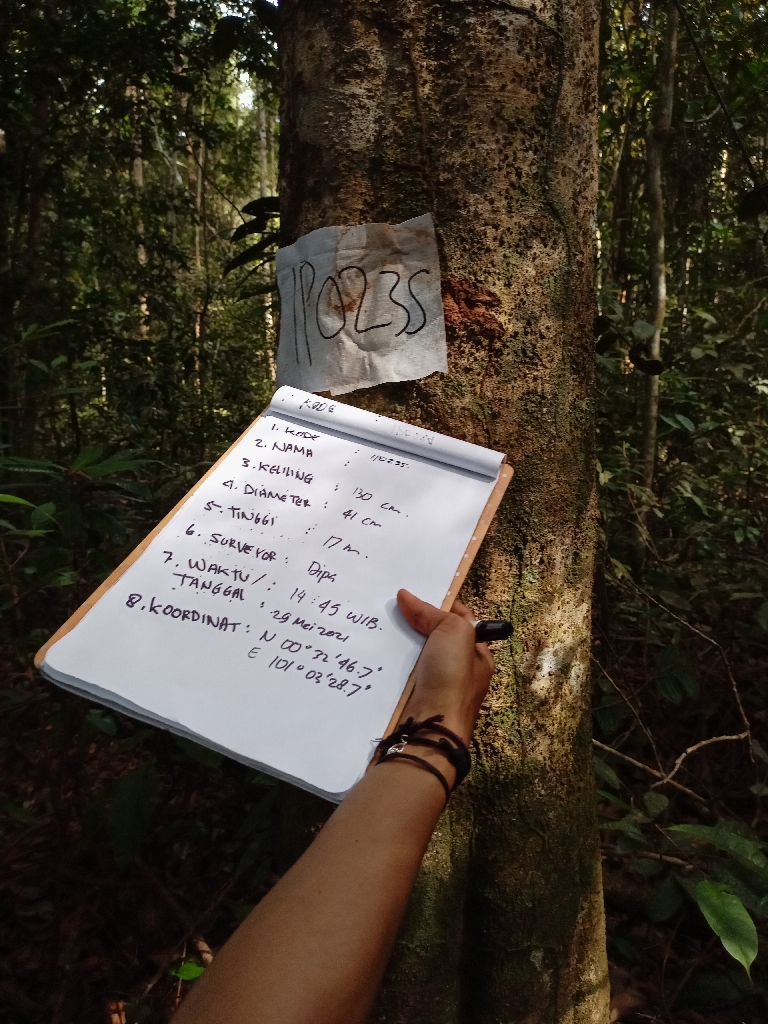 1P0235
1. KODE
1. KODE : 1P0235
2. NAMA :
3. KELILING : 130 cm
4. DIAMETER : 41 cm
5. TINGGI : 17 m.
6. SURVEYOR : Dipa
7. WAKTU / : 14:45 WIB.
TANGGAL : 29 Mei 2021
8. KOORDINAT : N 00° 32' 46.7"
E 101° 03' 28.7"